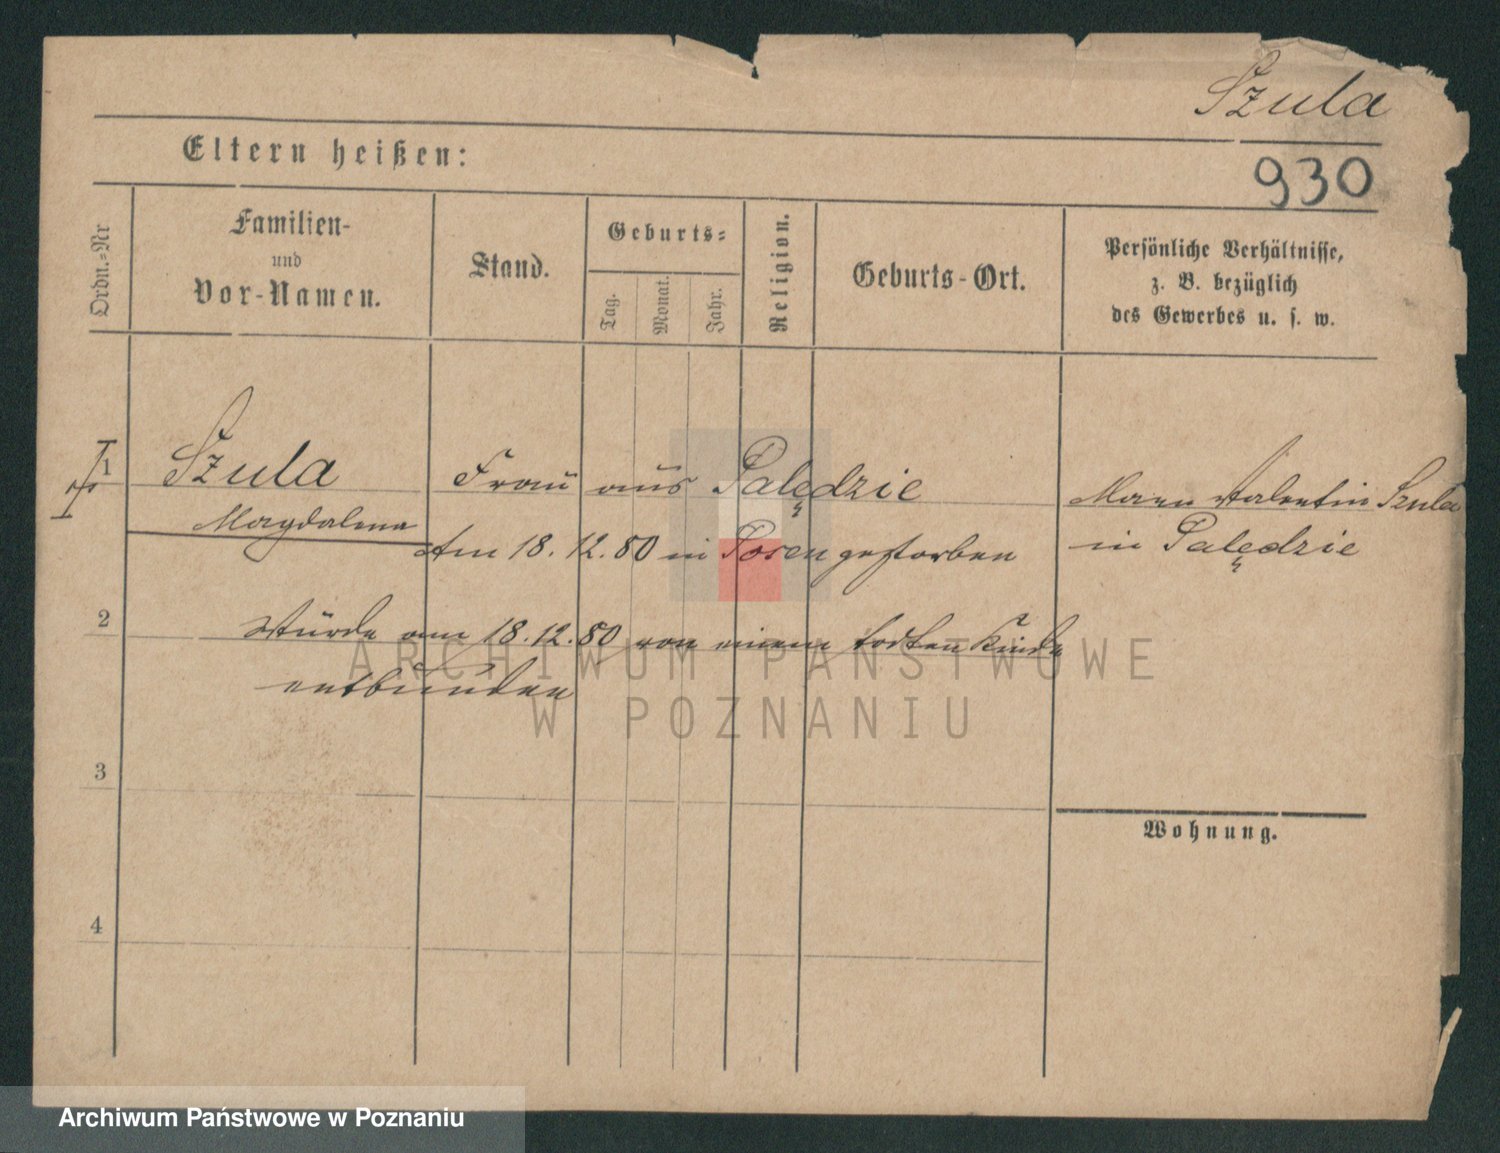 Szula
Eltern heißen:
930
Ordn.-Nr
Familien-
und
Vor-Namen.
Stand.
Geburts-
Tag.
Monat.
Jahr.
Religion.
Geburts-Ort.
Persönliche Verhältnisse,
z. B. bezüglich
des Gewerbes u. s. w.
1
Szula Frau aus Palędzie Mann Valentin Szula
Magdalena Am 18. 12. 80 in Posen gestorben in Palędzie
2
Wurde am 18. 12. 80 von einem todten Kinde
entbunden
ARCHIWUM PAŃSTWOWE
W POZNANIU
3
Wohnung.
4
Archiwum Państwowe w Poznaniu